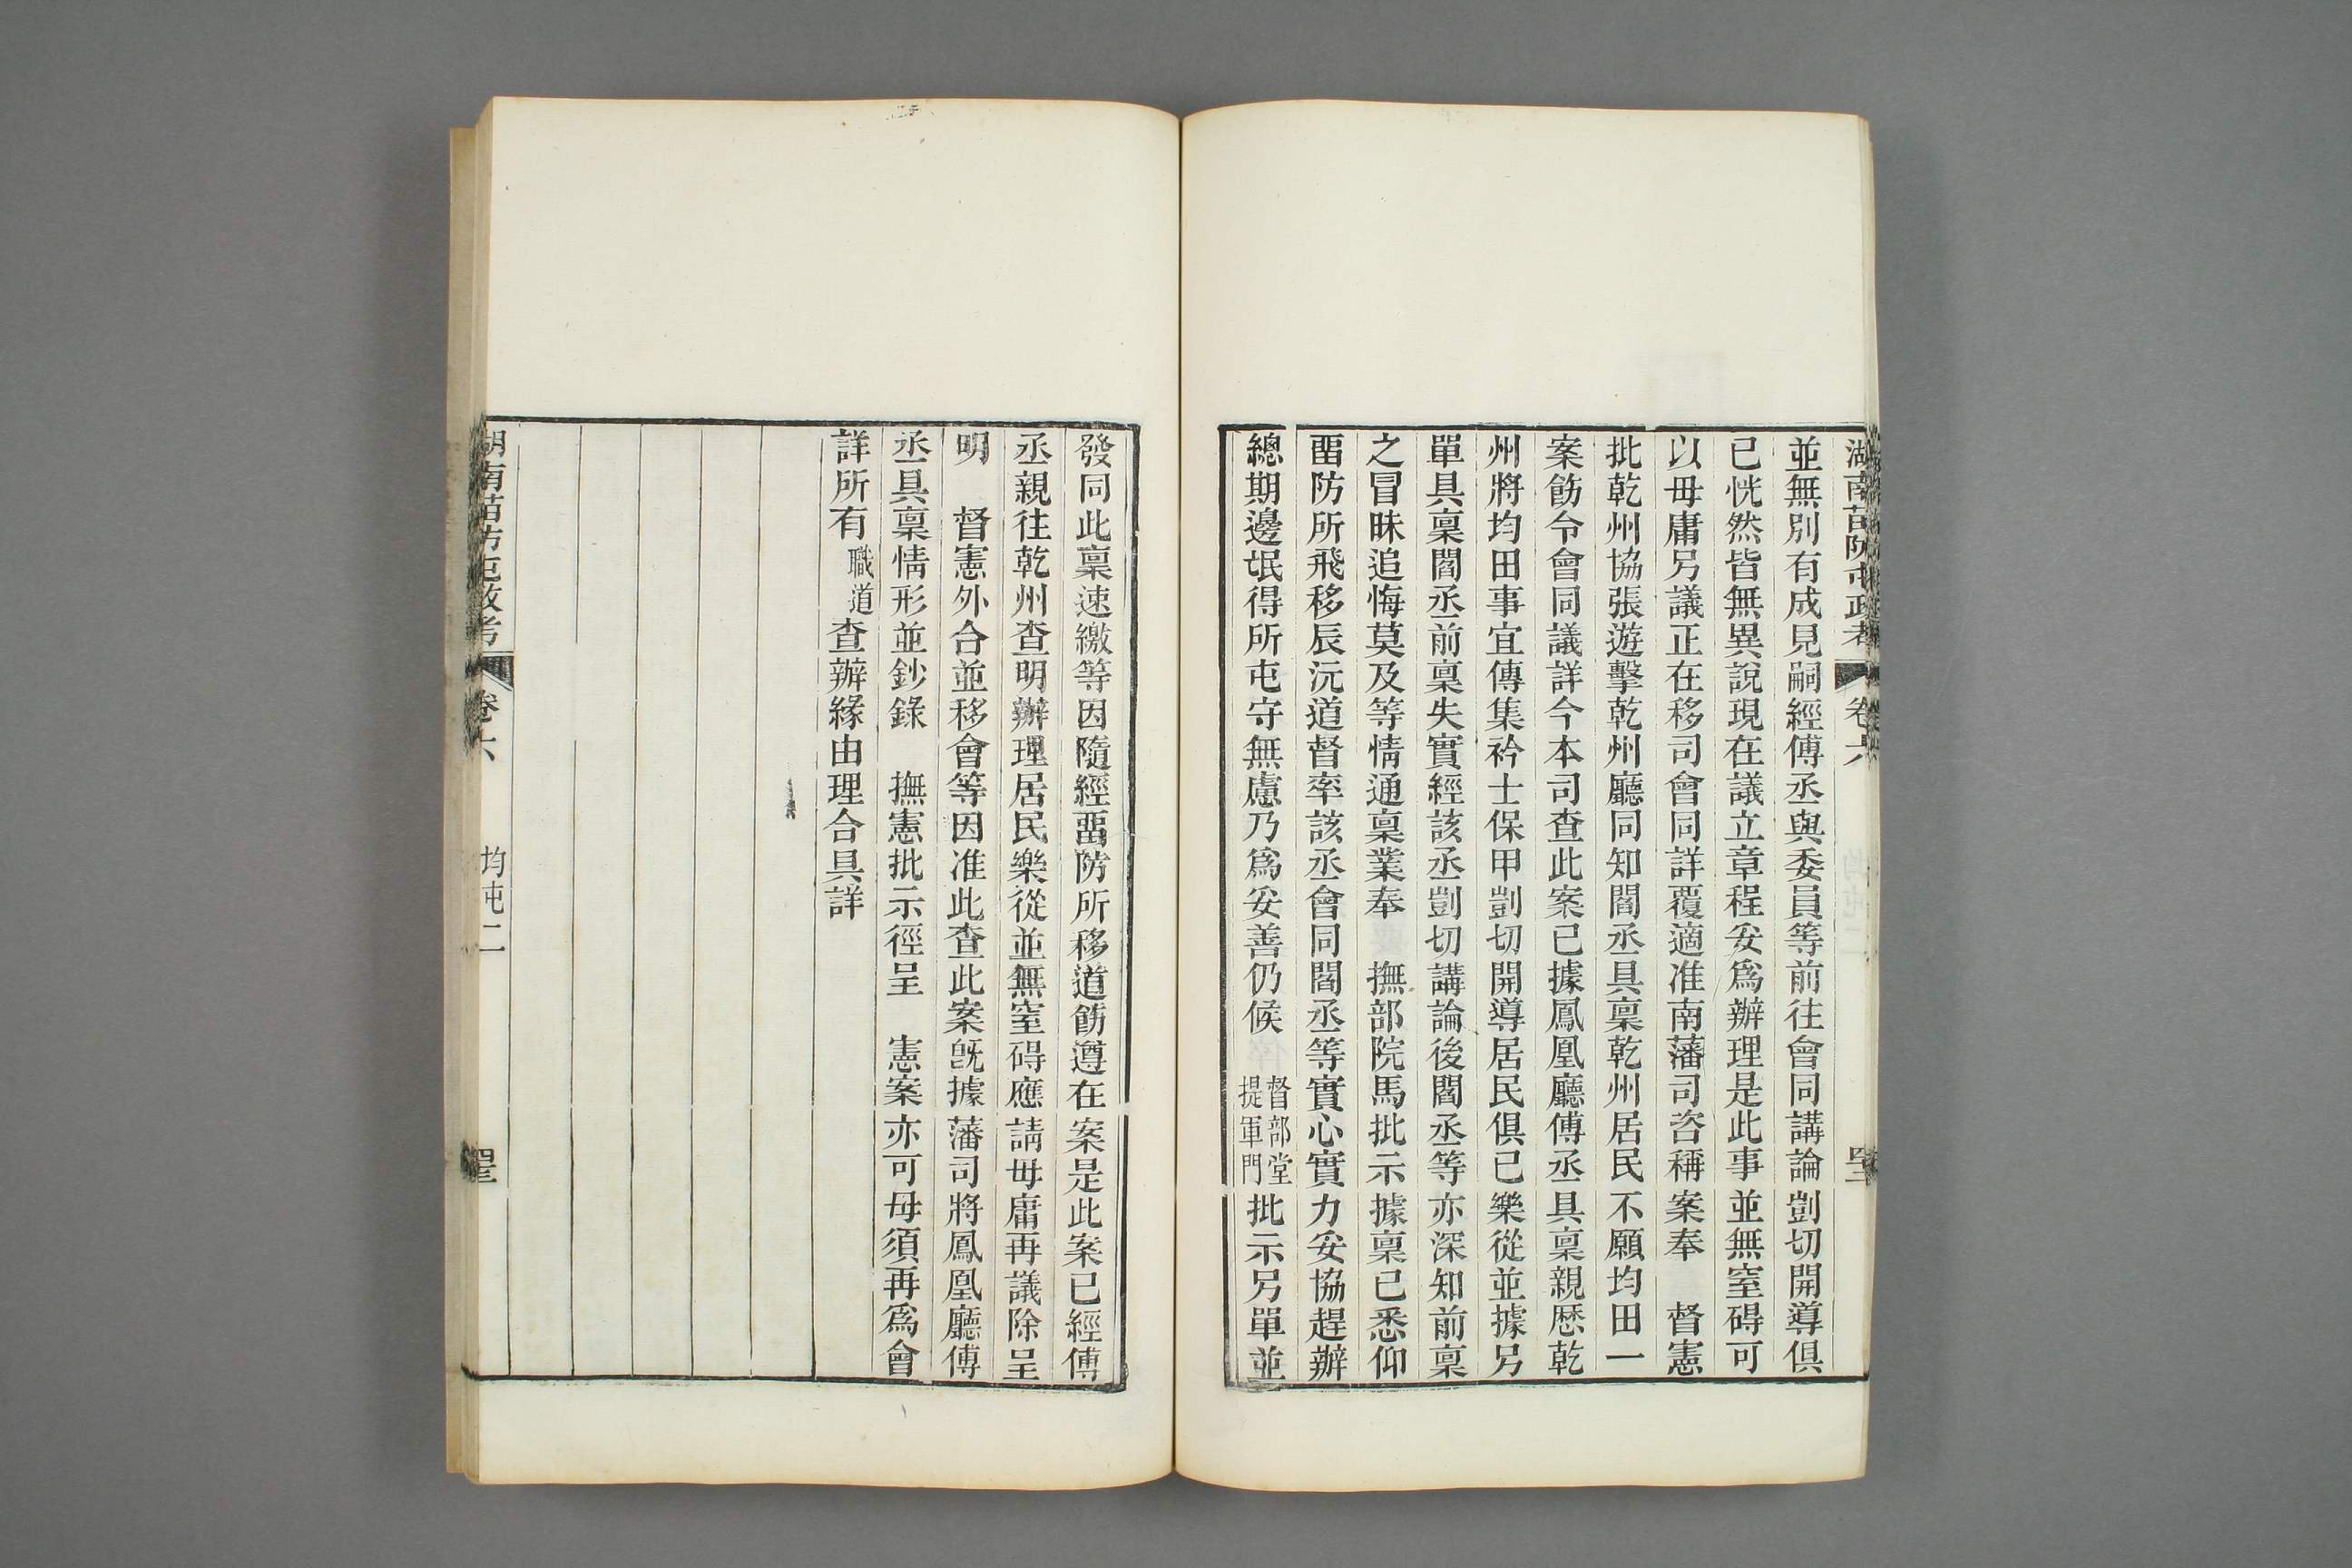 湖南苗防屯政考 卷六
並無別有成見嗣經傅丞與委員等前往會同講論剴切開導俱
已恍然皆無異說現在議立章程妥爲辦理是此事並無窒碍可
以毋庸另議正在移司會同詳覆適准南藩司咨稱案奉 督憲
批乾州協張遊擊乾州廳同知閻丞具稟乾州居民不願均田一
案飭令會同議詳今本司查此案已據鳳凰廳傅丞具稟親歷乾
州將均田事宜傳集衿士保甲剴切開導居民俱已樂從並據另
單具稟閻丞前稟失實經該丞剴切講論後閻丞等亦深知前稟
之冒昧追悔莫及等情通稟業奉 撫部院馬批示據稟已悉仰
畱防所飛移辰沅道督率該丞會同閻丞等實心實力妥協趕辦
總期邊氓得所屯守無慮乃爲妥善仍候 督部堂提軍門 批示另單並
發同此稟速繳等因隨經畱防所移道飭遵在案是此案已經傅
丞親往乾州查明辦理居民樂從並無窒碍應請毋庸再議除呈
明 督憲外合並移會等因准此查此案旣據藩司將鳳凰廳傅
丞具稟情形並鈔錄 撫憲批示徑呈 憲案亦可毋須再爲會
詳所有職道查辦緣由理合具詳
湖南苗防屯政考 卷六 均屯二